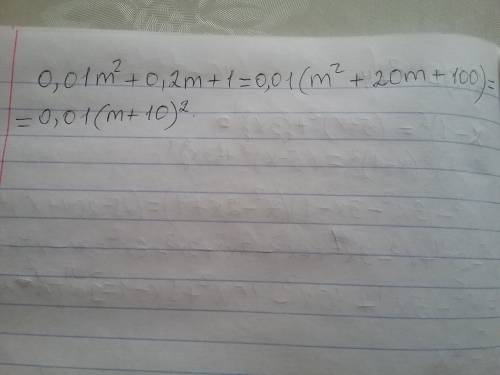 0,01m²+0,2m+1=0,01(m²+20m+100)=
=0,01(m+10)²